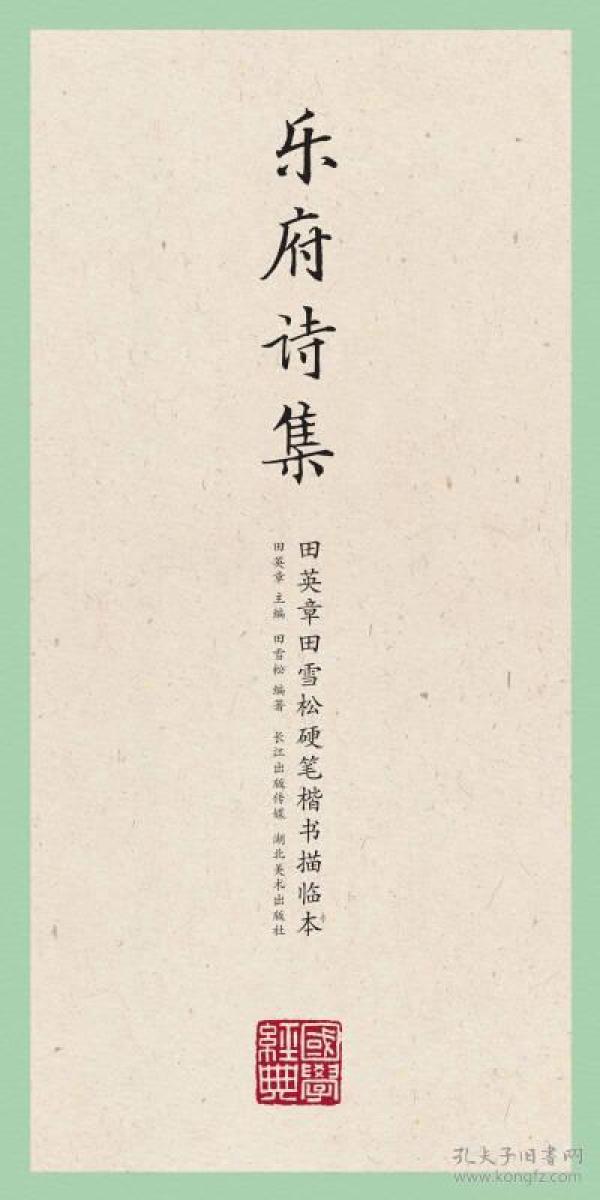 乐府诗集
田英章田雪松硬笔楷书描临本
田英章 主编 田雪松 编著 长江出版传媒 湖北美术出版社
國學
經典
孔夫子旧書网
www.kongfz.com